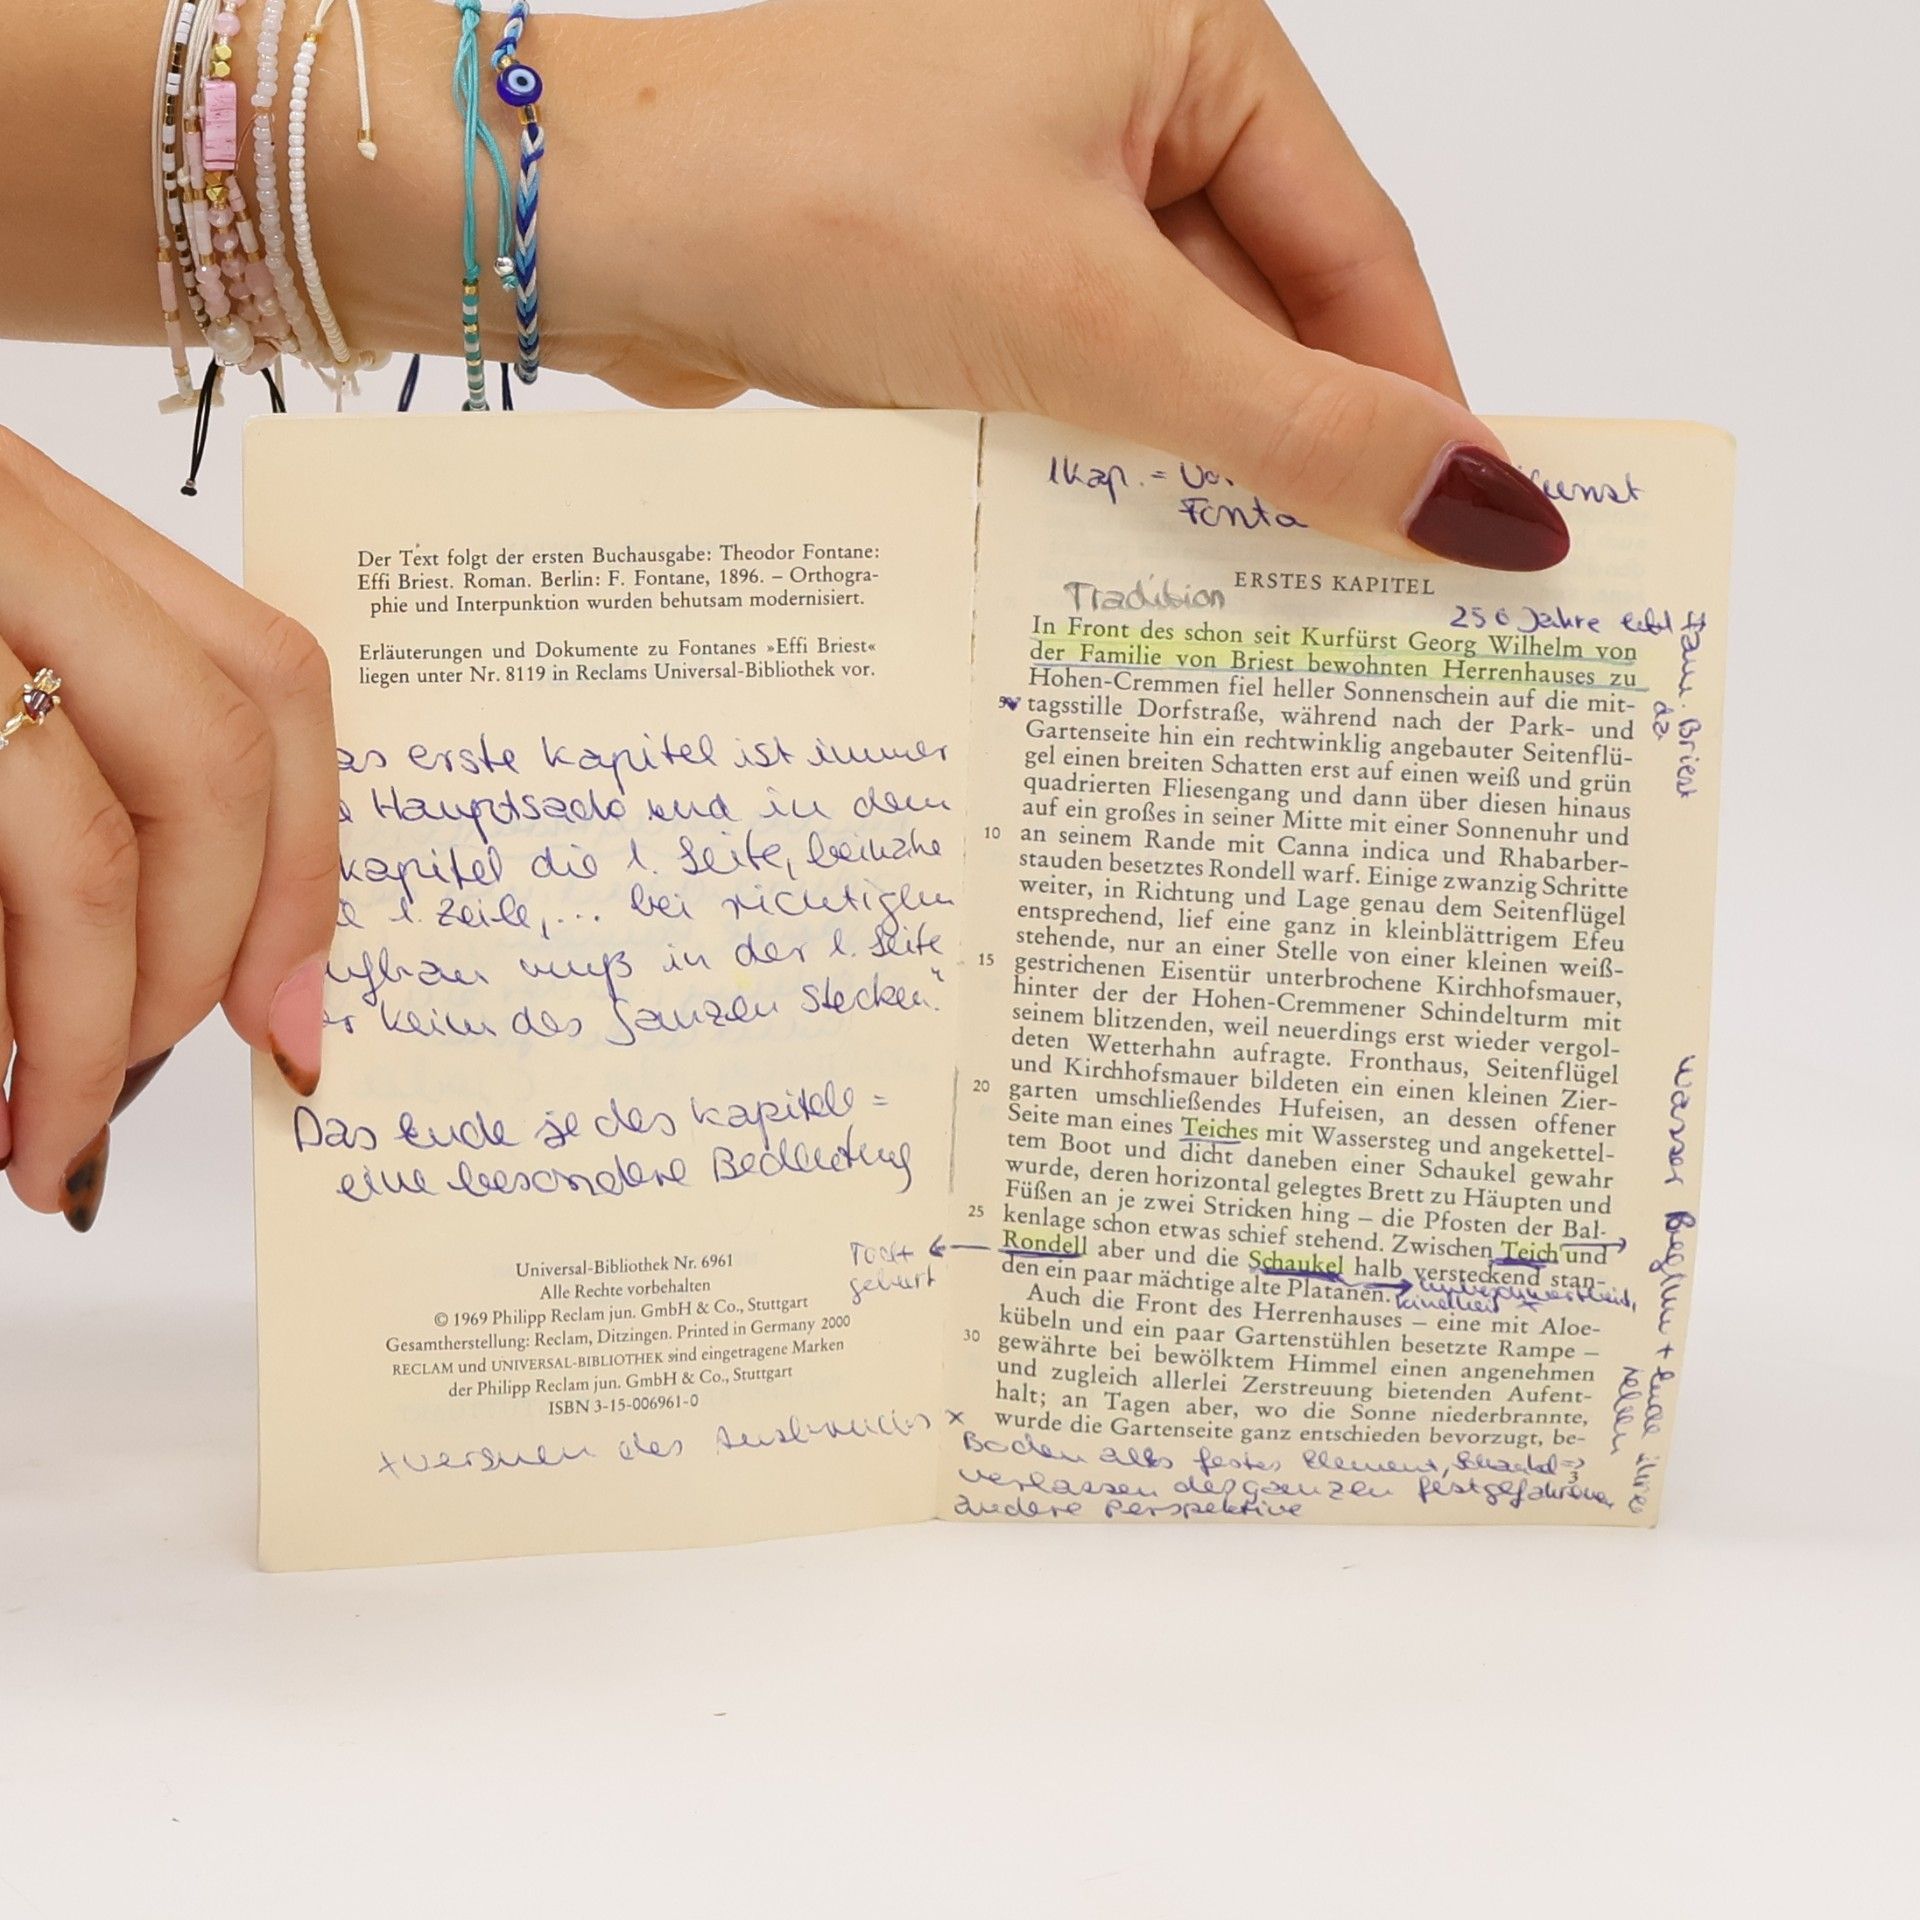 Der Text folgt der ersten Buchausgabe: Theodor Fontane:
Effi Briest. Roman. Berlin: F. Fontane, 1896. – Orthogra-
phie und Interpunktion wurden behutsam modernisiert.
Erläuterungen und Dokumente zu Fontanes »Effi Briest«
liegen unter Nr. 8119 in Reclams Universal-Bibliothek vor.
as erste Kapitel ist immer
Hauptsache und in dem
Kapitel die 1. Seite, beinahe
1. Zeile, ... bei richtigem
muß in der 1. Seite
Keim des Ganzen stecken."
Das Ende jedes Kapitels =
eine besondere Bedeutung
Universal-Bibliothek Nr. 6961
Alle Rechte vorbehalten
© 1969 Philipp Reclam jun. GmbH & Co., Stuttgart
Gesamtherstellung: Reclam, Ditzingen. Printed in Germany 2000
RECLAM und UNIVERSAL-BIBLIOTHEK sind eingetragene Marken
der Philipp Reclam jun. GmbH & Co., Stuttgart
ISBN 3-15-006961-0
des
1 Kap. =
Fonta
ERSTES KAPITEL
Tradition
250 Jahre lebt
Fam. Briest
da
In Front des schon seit Kurfürst Georg Wilhelm von
der Familie von Briest bewohnten Herrenhauses zu
Hohen-Cremmen fiel heller Sonnenschein auf die mit-
tagsstille Dorfstraße, während nach der Park- und
Gartenseite hin ein rechtwinklig angebauter Seitenflü-
gel einen breiten Schatten erst auf einen weiß und grün
quadrierten Fliesengang und dann über diesen hinaus
auf ein großes in seiner Mitte mit einer Sonnenuhr und
10 an seinem Rande mit Canna indica und Rhabarber-
stauden besetztes Rondell warf. Einige zwanzig Schritte
weiter, in Richtung und Lage genau dem Seitenflügel
entsprechend, lief eine ganz in kleinblättrigem Efeu
stehende, nur an einer Stelle von einer kleinen weiß-
15 gestrichenen Eisentür unterbrochene Kirchhofsmauer,
hinter der der Hohen-Cremmener Schindelturm mit
seinem blitzenden, weil neuerdings erst wieder vergol-
deten Wetterhahn aufragte. Fronthaus, Seitenflügel
und Kirchhofsmauer bildeten ein einen kleinen Zier-
20 garten umschließendes Hufeisen, an dessen offener
Seite man eines Teiches mit Wassersteg und angekettel-
tem Boot und dicht daneben einer Schaukel gewahr
wurde, deren horizontal gelegtes Brett zu Häupten und
Füßen an je zwei Stricken hing – die Pfosten der Bal-
25 kenlage schon etwas schief stehend. Zwischen Teich und
Rondell aber und die Schaukel halb versteckend stan-
den ein paar mächtige alte Platanen.
Kindheit
Auch die Front des Herrenhauses – eine mit Aloe-
kübeln und ein paar Gartenstühlen besetzte Rampe –
30 gewährte bei bewölktem Himmel einen angenehmen
und zugleich allerlei Zerstreuung bietenden Aufent-
halt; an Tagen aber, wo die Sonne niederbrannte,
wurde die Gartenseite ganz entschieden bevorzugt, be-
Boden als festes Element, Schaukel =>
verlassen des ganzen festgefahrenen
andere Perspektive
Wasser Beginn + Ende ihres